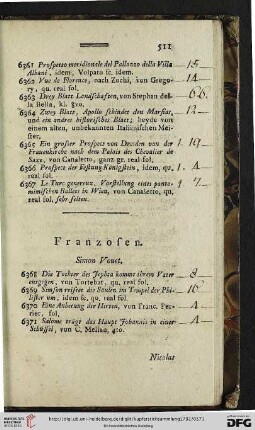 511
6361 Prospetto meridionale del Pallazzo della Villa — 15 —
Albani, idem, Volpato sc. idem.
6362 Vue de Florence, nach Zochi, von Grego- — 14 —
ry, qu. real fol.
6363 Zwey Blatt Landschaften, von Stephan del-
la Bella, kl. 8vo.
6364 Zwey Blatt, Apollo schindet den Marsias, — 12 —
und ein andres historisches Blatt; beyde von
einem alten, unbekannten Italienischen Mei-
ster.
6365 Ein großer Prospect von Dresden von der
Frauenkirche nach dem Palais des Chevalier de
Saxe, von Canaletto, ganz gr. real fol.
6366 Prospect der Festung Königstein, idem, qu.
real fol.
6367 Le Turc genereux. Vorstellung eines panto-
mimischen Ballets in Wien, von Canaletto, qu.
real fol. sehr selten.
Franzosen.
Simon Vouet.
6368 Die Tochter des Jephta kommt ihrem Vater — 8 —
entgegen, von Tortebat, qu. real fol.
6369 Simson reisset die Säulen im Tempel der Phi- — 16
lister um, idem sc. qu. real fol.
6370 Eine Anbetung der Hirten, von Franc. Per- — 4 —
rier, fol.
6371 Salome trägt das Haupt Johannis in einer — 4 —
Schüssel, von C. Mellan, 4to.
Nicolas